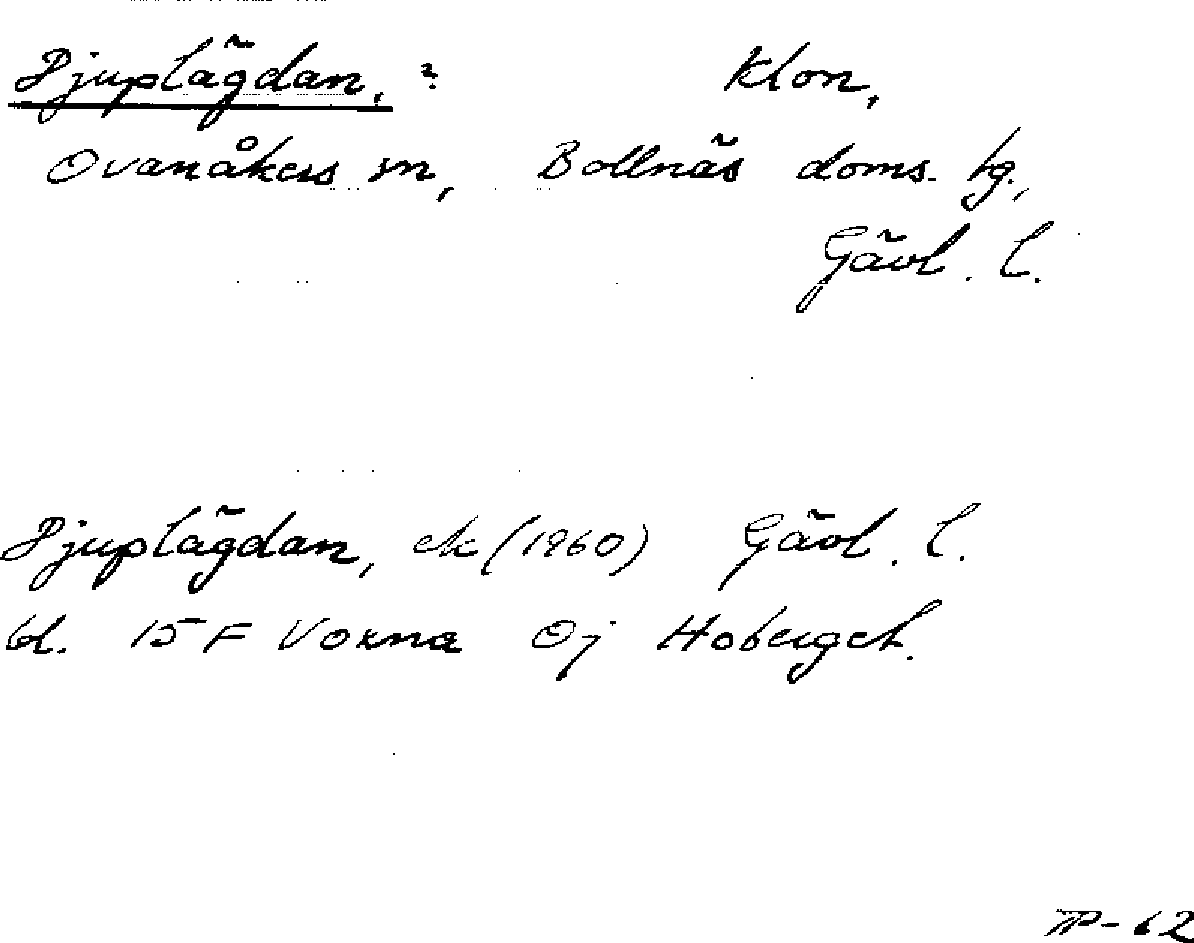 Djuplägdan, ? Klon,
Ovanåkers sn, Bollnäs doms. tg.,
Gävl. l.
Djuplägdan, ek (1960) Gävl. l.
bl. 15 F Voxna Oj Hoberget.
TP-62